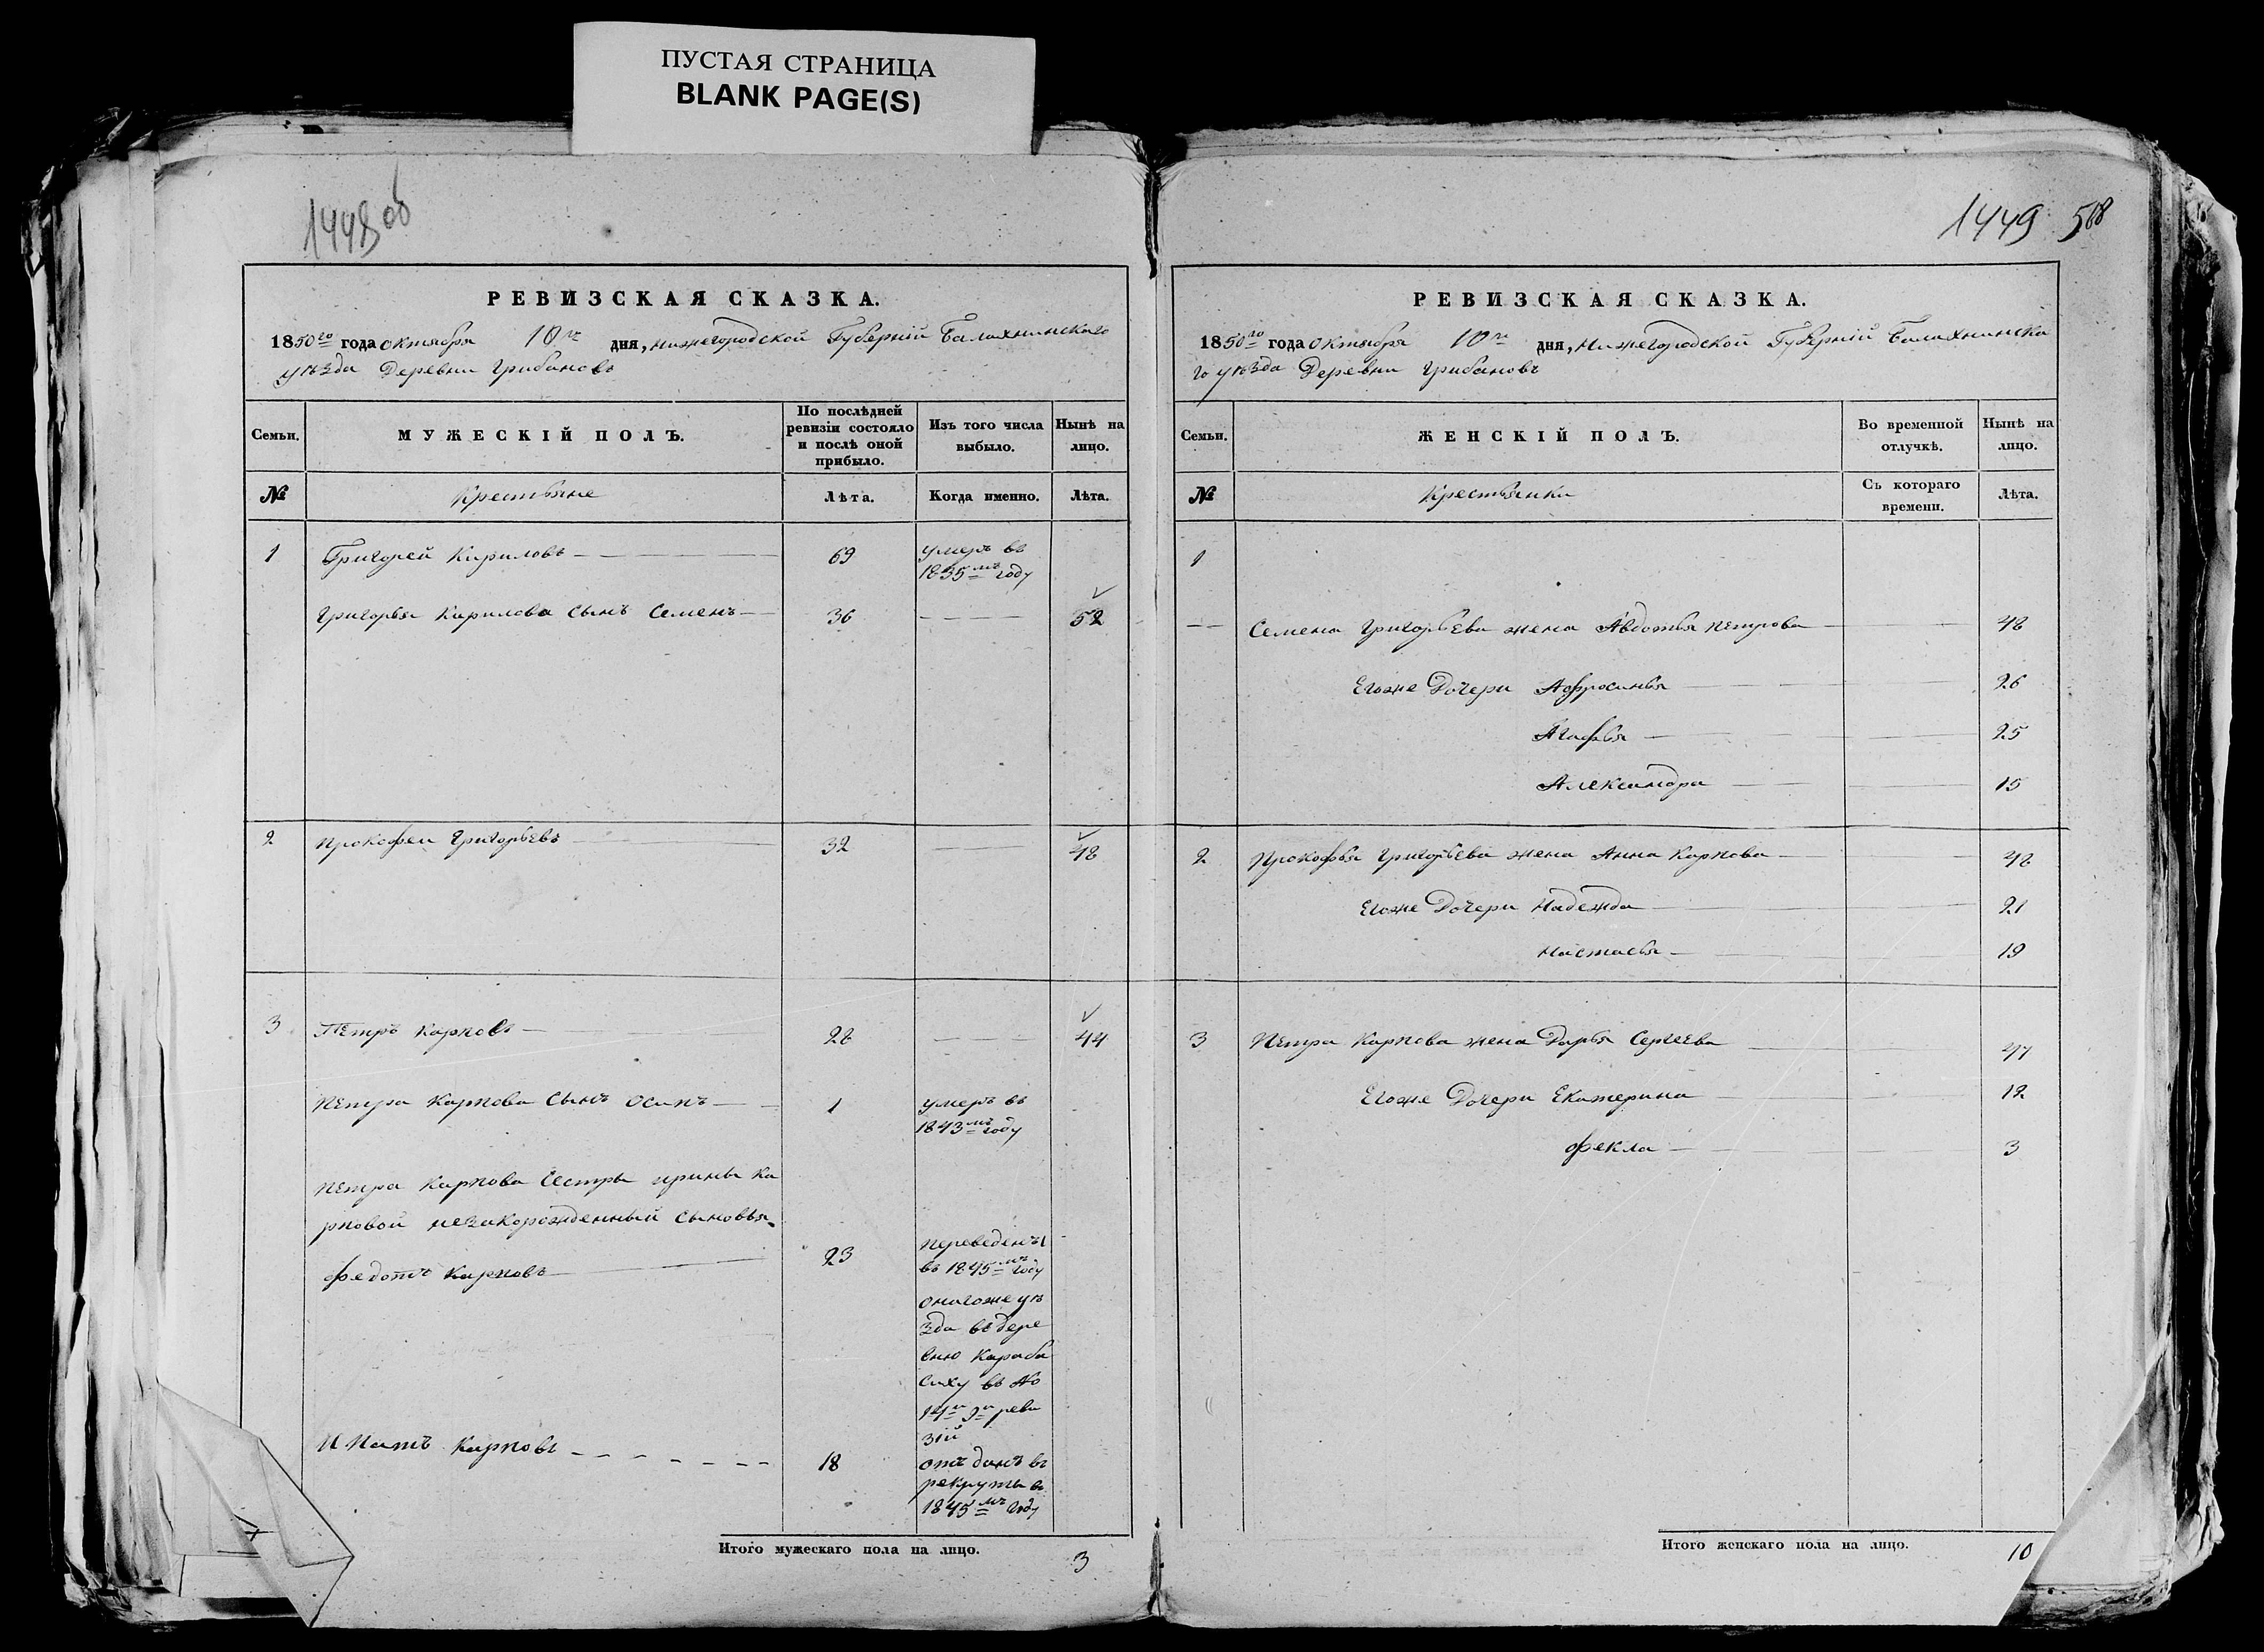 ПУСТАЯ СТРАНИЦА
BLANK PAGE(S)
1448 об
РЕВИЗСКАЯ СКАЗКА.
1850го года октября 10го дня, нижегородской Губерній Балахнинскаго
уѣзда Деревни Грибановъ
Семьи. МУЖЕСКІЙ ПОЛЪ. По послѣдней ревизіи состояло и послѣ оной прибыло. Изъ того числа выбыло. Нынѣ на лицо.
№ Крестьяне Лѣта. Когда именно. Лѣта.
1 Григорей Кириловъ 69 умеръ въ
1835мъ году
Григорья Кирилова сынъ Семенъ 36 52
2 Прокофеи Григорьевъ 32 48
3 Петръ Карповъ 28 44
Петра Карпова сынъ Осипъ 1 умеръ въ
1843мъ году
Петра Карпова Сестры ирины Ка
рповой незакорожденный сыновья
Федотъ Карповъ 23 переведенъ
въ 1845мъ году
онагоже уѣ
зда въ дере
вню Караба
сиху въ №
14й 9й реви
зій
Ипатъ Карповъ 18 отъ данъ въ
рекруты въ
1845мъ году
Итого мужескаго пола на лицо. 3
1449 508
РЕВИЗСКАЯ СКАЗКА.
1850го года Октября 10го дня, Нижегородской Губерній Балахнинска
го уѣзда Деревни Грибановъ
Семьи. ЖЕНСКІЙ ПОЛЪ. Во временной отлучкѣ. Нынѣ на лицо.
№ Крестьянки Съ котораго времени. Лѣта.
1
Семена Григорьева жена Авдотья Петрова 48
Егоже Дочери Афросинья 26
Агафья 25
Александра 15
2 Прокофья Григорьева жена Анна Карпова 48
Егоже Дочери Надежда 21
Настасья 19
3 Петра Карпова жена Дарья Сергеева 47
Егоже Дочери Екатерина 12
Фекла 3
Итого женскаго пола на лицо. 10